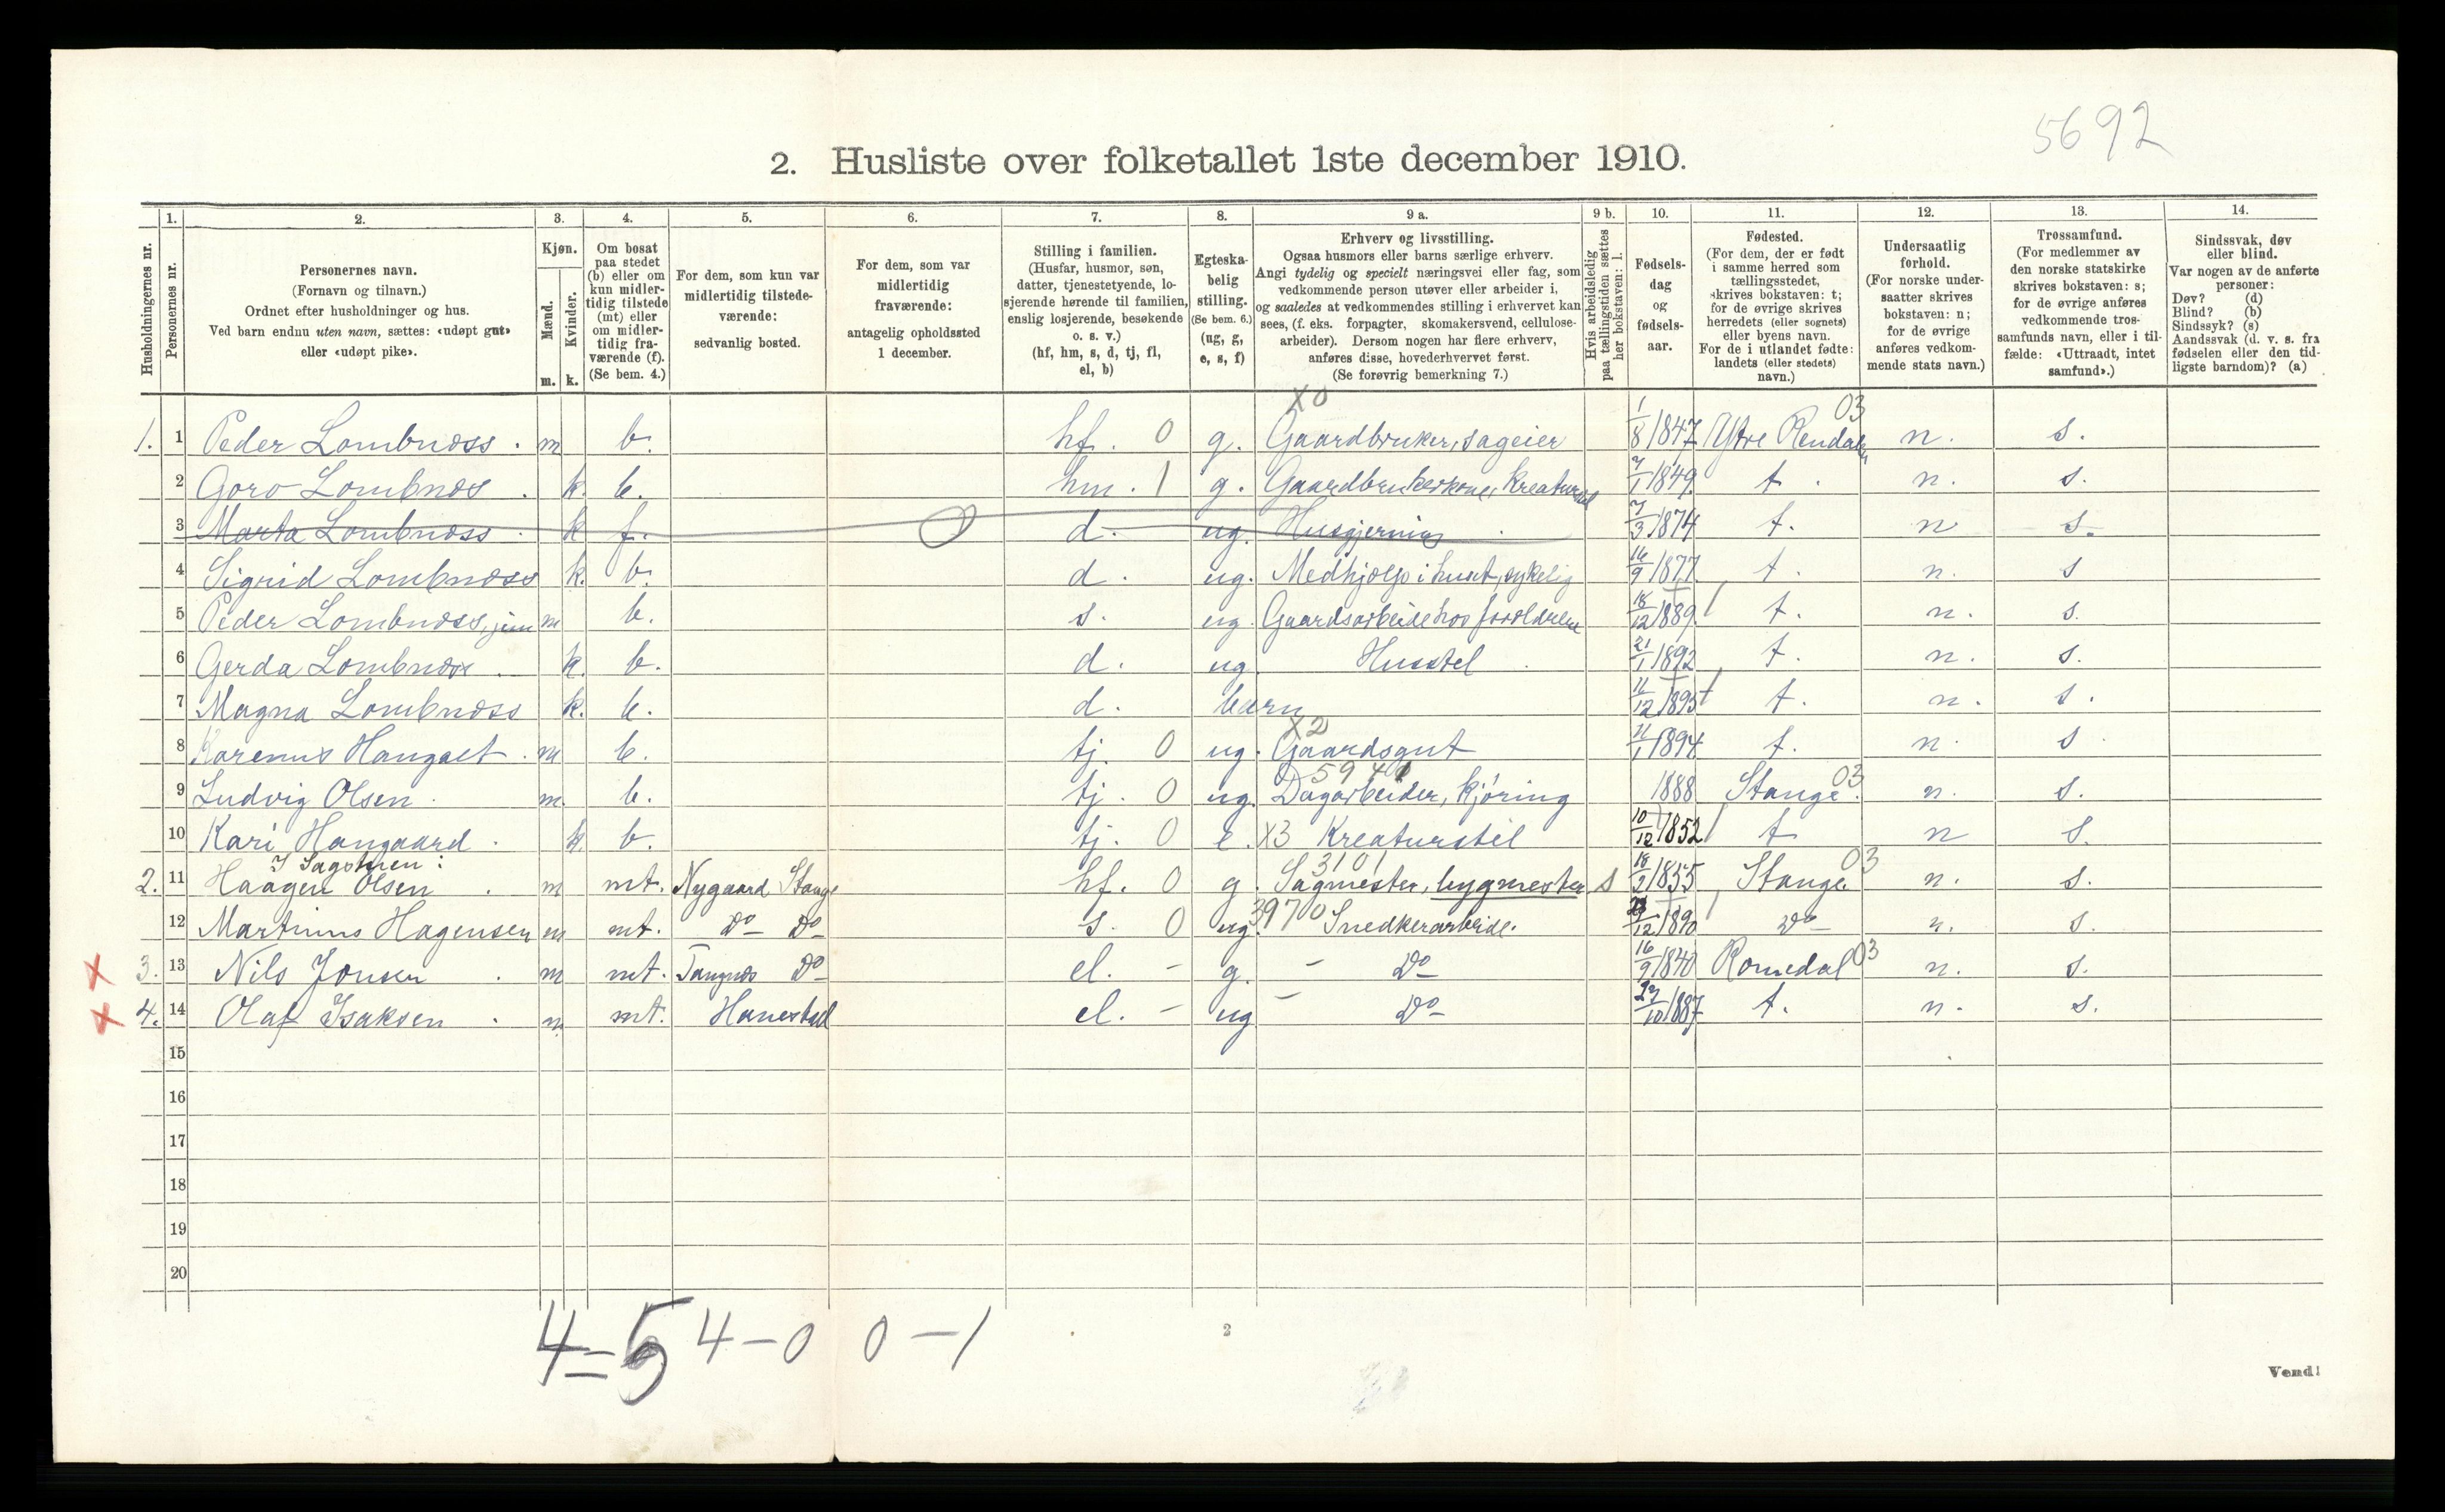 5692
2. Husliste over folketallet 1ste december 1910.
Husholdningernes nr.
1.
Personernes nr.
2.
Personernes navn.
(Fornavn og tilnavn.)
Ordnet efter husholdninger og hus.
Ved barn endnu uten navn, sættes: «udøpt gut»
eller «udøpt pike».
3.
Kjøn.
Mænd.
Kvinder.
m. k.
4.
Om bosat
paa stedet
(b) eller om
kun midler-
tidig tilstede
(mt) eller
om midler-
tidig fra-
værende (f).
(Se bem. 4.)
5.
For dem, som kun var
midlertidig tilstede-
værende:
sedvanlig bosted.
6.
For dem, som var
midlertidig
fraværende:
antagelig opholdssted
1 december.
7.
Stilling i familien.
(Husfar, husmor, søn,
datter, tjenestetyende, lo-
sjerende hørende til familien,
enslig losjerende, besøkende
o. s. v.)
(hf, hm, s, d, tj, fl,
el, b)
8.
Egteska-
belig
stilling.
(Se bem. 6.)
(ug, g,
e, s, f)
9 a.
Erhverv og livsstilling.
Ogsaa husmors eller barns særlige erhverv.
Angi tydelig og specielt næringsvei eller fag, som
vedkommende person utøver eller arbeider i,
og saaledes at vedkommendes stilling i erhvervet kan
sees, (f. eks. forpagter, skomakersvend, cellulose-
arbeider). Dersom nogen har flere erhverv,
anføres disse, hovederhvervet først.
(Se forøvrig bemerkning 7.)
9 b.
Hvis arbeidsledig
paa tællingstiden sættes
her bokstaven: l.
10.
Fødsels-
dag
og
fødsels-
aar.
11.
Fødested.
(For dem, der er født
i samme herred som
tællingsstedet,
skrives bokstaven: t;
for de øvrige skrives
herredets (eller sognets)
eller byens navn.
For de i utlandet fødte:
landets (eller stedets)
navn.)
12.
Undersaatlig
forhold.
(For norske under-
saatter skrives
bokstaven: n;
for de øvrige
anføres vedkom-
mende stats navn.)
13.
Trossamfund.
(For medlemmer av
den norske statskirke
skrives bokstaven: s;
for de øvrige anføres
vedkommende tros-
samfunds navn, eller i til-
fælde: «Uttraadt, intet
samfund».)
14.
Sindssvak, døv
eller blind.
Var nogen av de anførte
personer:
Døv? (d)
Blind? (b)
Sindssyk? (s)
Aandssvak (d. v. s. fra
fødselen eller den tid-
ligste barndom)? (a)
X0 03
1. 1 Peder Lombnæss . m b. hf. 0 g. Gaardbruker, sageier 1/8 1847 Ytre Rendalen n. s.
2 Goro Lombnæs . k. b. hm. 1 g. Gaardbrukerkone, Kreaturstel 7/1 1849 t. n. s.
3 Marta Lombnæss . k f. d. ug. Husgjerning 7/3 1874 t. n s.
4 Sigrid Lombnæss k. b. d. ug. Medhjælp i huset, sykelig 16/9 1877 t. n. s
5 Peder Lombnæss, jun m b. s. ug. Gaardsarbeide hos forældrene 18/12 1889 t. n. s.
6 Gerda Lombnæss k. b. d. ug Husstel 21/1 1892 t. n. s.
7 Magna Lombnæss k. b. d. barn 11/12 1895 t. n. s.
X2
8 Karenus Haugset . m b. tj. 0 ug. Gaardsgut 11/1 1894 t. n. s.
5940 03
9 Ludvig Olsen . m. b. tj. 0 ug. Dagarbeider, kjøring 1888 Stange. n. s.
10 Kari Haugaard . k. b. tj. 0 e. X3 Kreaturstel 10/12 1852 t n s.
I Sagstuen: 3101 03
2. 11 Haagen Olsen . m mt. Nygaard Stange hf. 0 g. Sagmester, bygmester s 18/2 1855 Stange. n. s.
12 Martinus Hagensen m mt. Do Do s. 0 ug. 3970 Snedkerarbeide. /12 1890 Do n. s.
3. 13 Nils Jonsen . m mt. Tangnæs Do el. - g. - Do 16/9 1840 Romedal 03 n. s.
4. 14 Olaf Isaksen . m. mt. Hanestad el. - ug - Do 27/10 1887 t. n. s.
15
16
17
18
19
20
4=5 4-0 0-1
2
Vend!